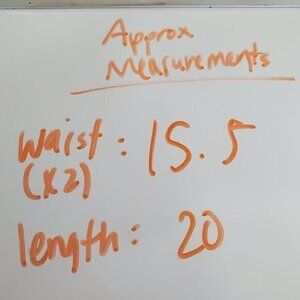 Approx
Measurements
waist: 15.5
(x2)
length: 20